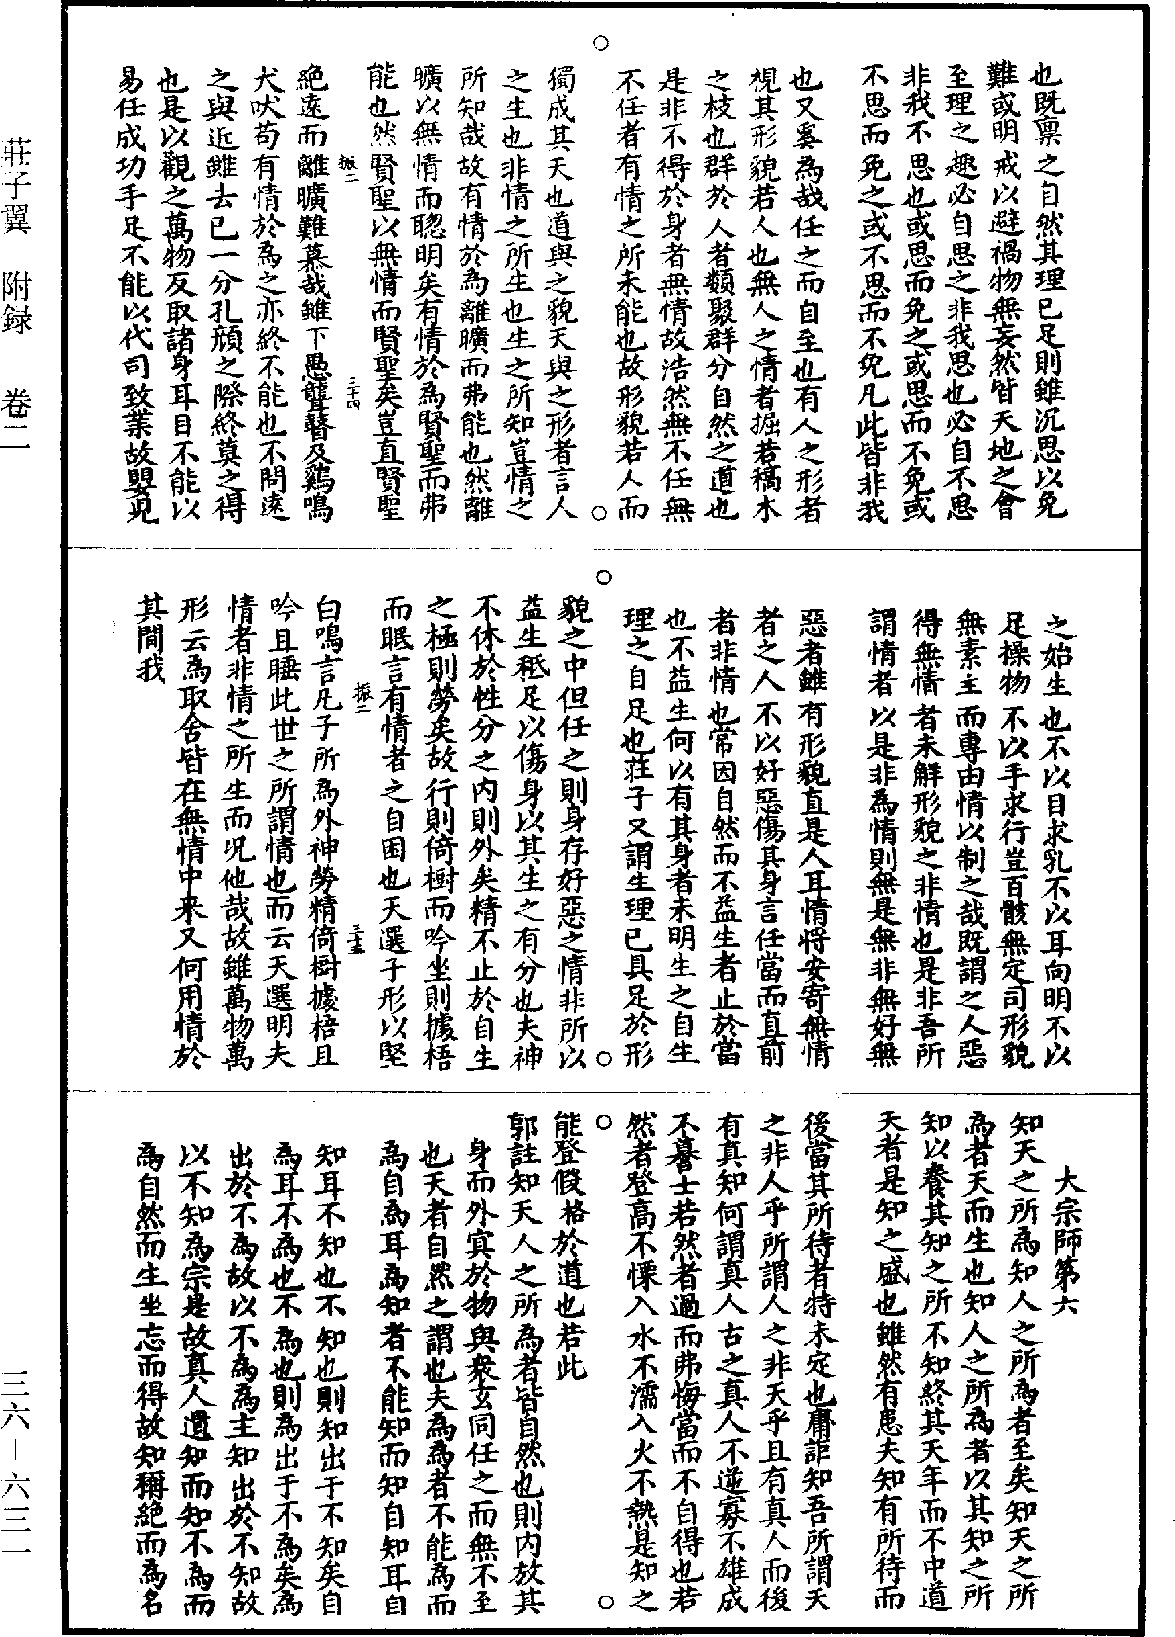 也既稟之自然其理已足則雖沉思以免
難或明戒以避禍物無妄然皆天地之會
至理之趣必自思之非我思也必自不思
非我不思也或思而免之或思而不免或
不思而免之或不思而不免凡此皆非我
也又奚為哉任之而自至也有人之形者
視其形貌若人也無人之情者掘若槁木
之枝也群於人者類聚群分自然之道也
是非不得於身者無情故浩然無不任無
不任者有情之所未能也故形貌若人而
獨成其天也道與之貌天與之形者言人
之生也非情之所生也生之所知豈情之
所知哉故有情於為離曠而弗能也然離
曠以無情而聰明矣有情於為賢聖而弗
能也然賢聖以無情而賢聖矣豈直賢聖
振二 三十四
絕遠而離曠難慕哉雖下愚聾瞽及鷄鳴
犬吠苟有情於為之亦終不能也不問遠
之與近雖去已一分孔顏之際終莫之得
也是以觀之萬物反取諸身耳目不能以
易任成功手足不能以代司致業故嬰兒
之始生也不以目求乳不以耳向明不以
足操物不以手求行豈百骸無定司形貌
無素主而專由情以制之哉既謂之人惡
得無情者未解形貌之非情也是非吾所
謂情者以是非為情則無是無非無好無
惡者雖有形貌直是人耳情將安寄無情
者之人不以好惡傷其身言任當而直前
者非情也常因自然而不益生者止於當
也不益生何以有其身者未明生之自生
理之自足也莊子又謂生理已具足於形
貌之中但任之則身存好惡之情非所以
益生秪足以傷身以其生之有分也夫神
不休於性分之內則外矣精不止於自生
之極則勞矣故行則倚樹而吟坐則據梧
而眠言有情者之自困也天選子形以堅
振二 三十五
白鳴言凡子所為外神勞精倚樹據梧且
吟且睡此世之所謂情也而云天選明夫
情者非情之所生而況他哉故雖萬物萬
形云為取舍皆在無情中來又何用情於
其間哉
大宗師第六
知天之所為知人之所為者至矣知天之所
為者天而生也知人之所為者以其知之所
知以養其知之所不知終其天年而不中道
夭者是知之盛也雖然有患夫知有所待而
後當其所待者特未定也庸詎知吾所謂天
之非人乎所謂人之非天乎且有真人而後
有真知何謂真人古之真人不逆寡不雄成
不謩士若然者過而弗悔當而不自得也若
然者登高不慄入水不濡入火不熱是知之
能登假格於道也若此
郭註知天人之所為者皆自然也則內放其
身而外冥於物與眾玄同任之而無不至
也天者自然之謂也夫為為者不能為而
為自為耳為知者不能知而知自知耳自
知耳不知也不知也則知出于不知矣自
為耳不為也不為也則為出于不為矣為
出於不為故以不為為主知出於不知故
以不知為宗是故真人遺知而知不為而
為自然而生坐忘而得故知稱絕而為名
莊子翼 附録 卷二
三六－六三一